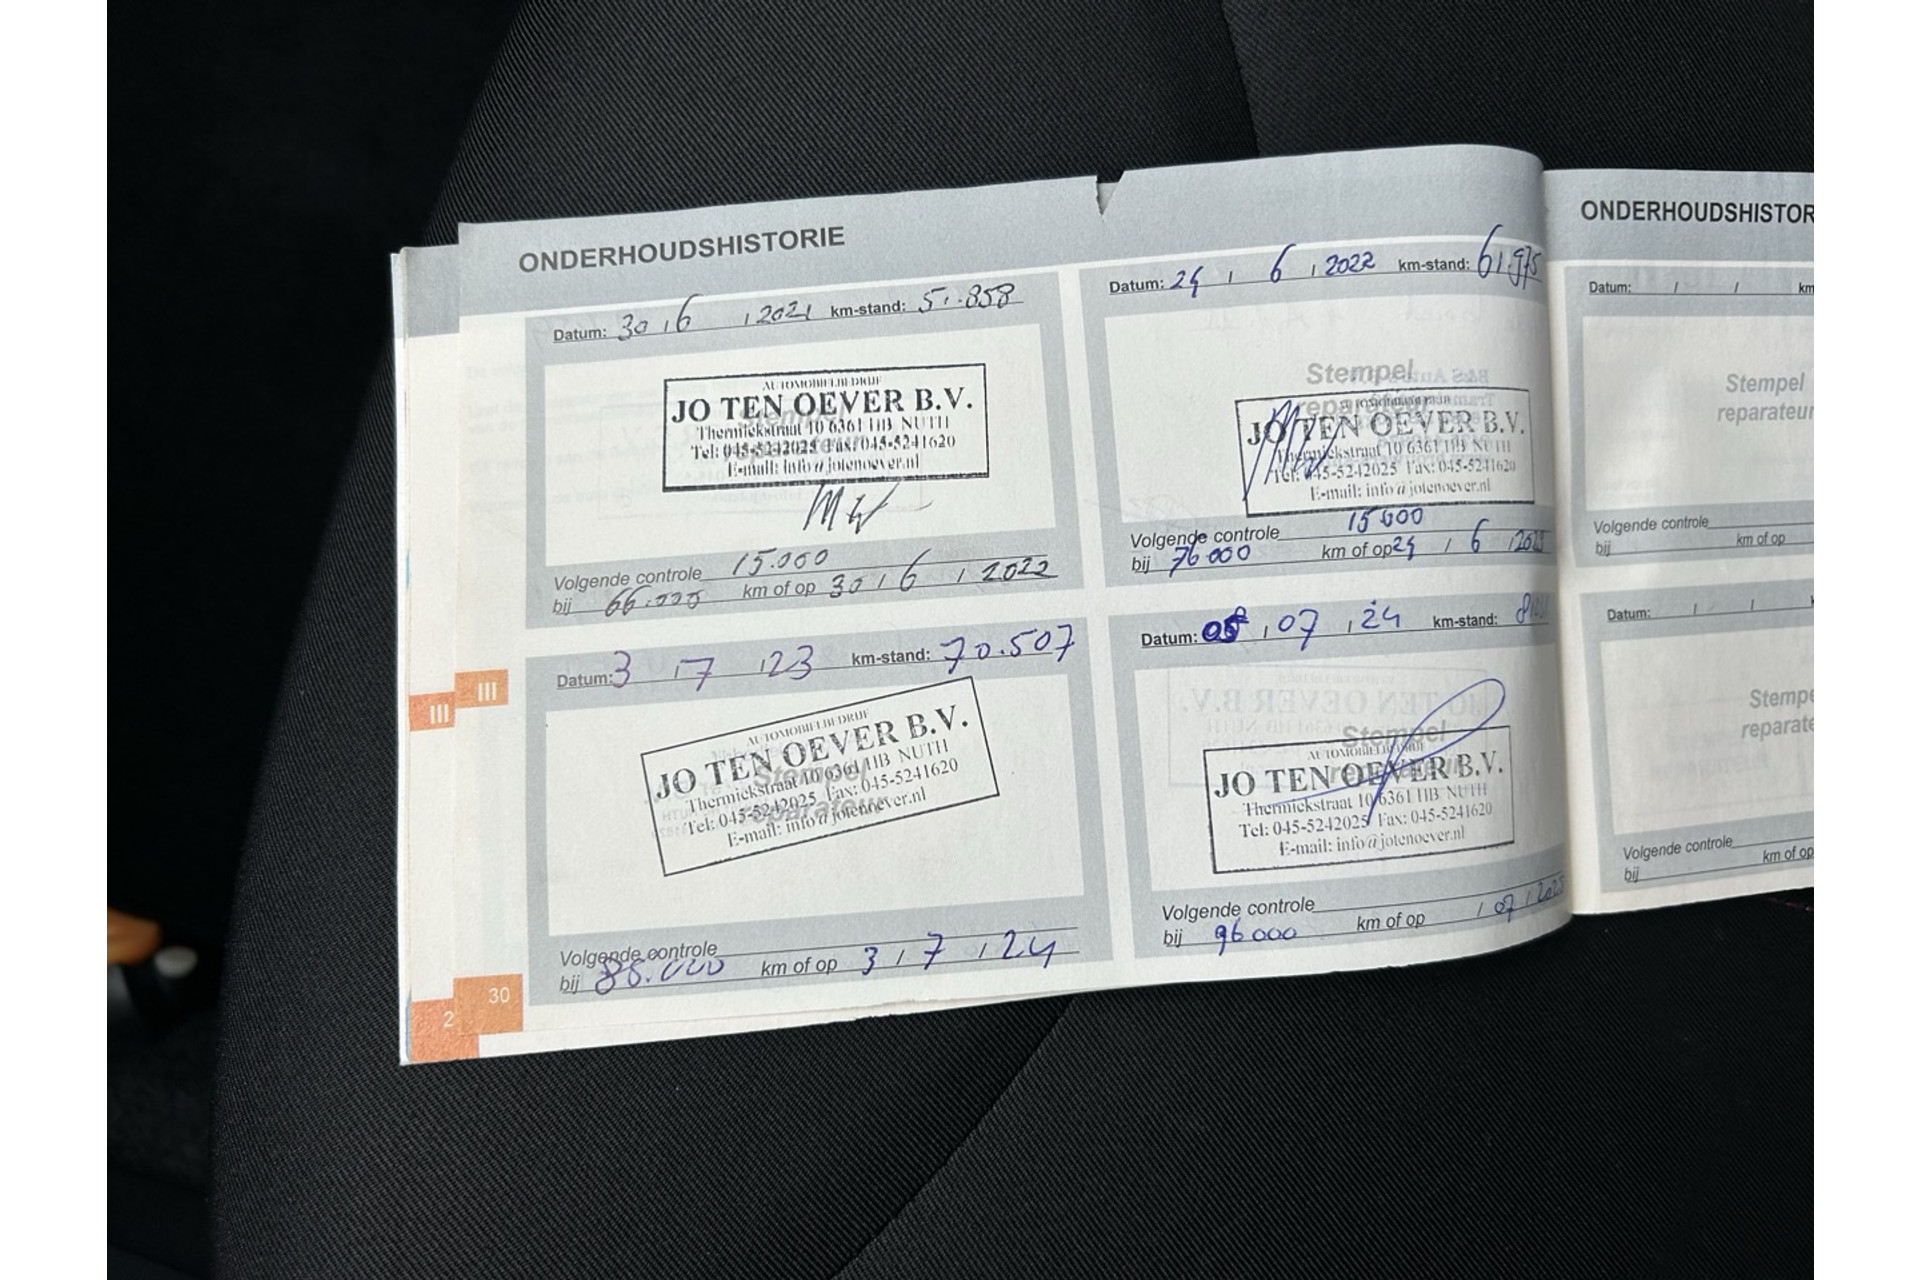 ONDERHOUDSHISTORIE
Datum: 30 / 6 / 2021 km-stand: 51.858
AUTOMOBIELBEDRIJF
JO TEN OEVER B.V.
Thermiekstraat 10 6361 HB NUTH
Tel: 045-5242025 Fax: 045-5241620
E-mail: info@jotenoever.nl
Volgende controle 15.000
bij 66.000 km of op 30 / 6 / 2022
Datum: / 6 / 2022 km-stand: 61.975
Stempel
reparateur
AUTOMOBIELBEDRIJF
JO TEN OEVER B.V.
Thermiekstraat 10 6361 HB NUTH
Tel: 045-5242025 Fax: 045-5241620
E-mail: info@jotenoever.nl
Volgende controle 15 000
bij 76 000 km of op / 6 /
Datum: 3 / 7 / 23 km-stand: 70.507
Stempel
reparateur
AUTOMOBIELBEDRIJF
JO TEN OEVER B.V.
Thermiekstraat 10 6361 HB NUTH
Tel: 045-5242025 Fax: 045-5241620
E-mail: info@jotenoever.nl
Volgende controle
bij 85.000 km of op 3 / 7 / 24
Datum: / 07 / 24 km-stand:
Stempel
reparateur
AUTOMOBIELBEDRIJF
JO TEN OEVER B.V.
Thermiekstraat 10 6361 HB NUTH
Tel: 045-5242025 Fax: 045-5241620
E-mail: info@jotenoever.nl
Volgende controle
bij 96 000 km of op / 07 / 2025
III
III
30
2
ONDERHOUDSHISTOR
Datum: / / km
Stempel
reparateur
Volgende controle
bij km of op
Datum: / /
Stempe
reparate
Volgende controle
bij km of op